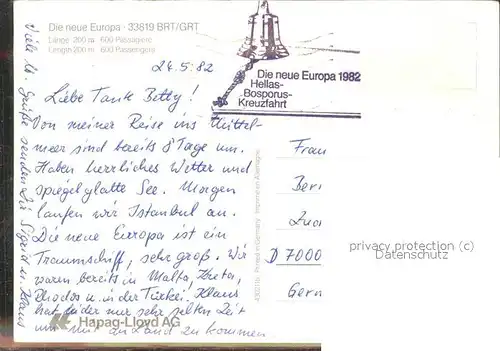 Die neue Europa · 33819 BRT/GRT
Länge 200 m 600 Passagiere
Length 200 m 600 Passengers
24.5.82
Die neue Europa 1982
Hellas-
Bosporus-
Kreuzfahrt
Liebe Tante Betty!
Von meiner Reise ins Mittel-
meer sind bereits 8 Tage um.
Haben herrliches Wetter und
spiegelglatte See. Morgen
laufen wir Istanbul an.
Die neue Europa ist ein
Traumschiff, sehr groß. Wir
waren bereits in Malta, Kreta,
Rhodos u. in der Türkei! Klaus
hat leider nur sehr selten Zeit
um mit an Land zu kommen
Viele lb. Grüße senden Dir Sigrid u. Klaus
Hapag-Lloyd AG
Printed in Germany · Imprimé en Allemagne
Frau
Ber
D 7000
Germ
privacy protection (c)
Datenschutz